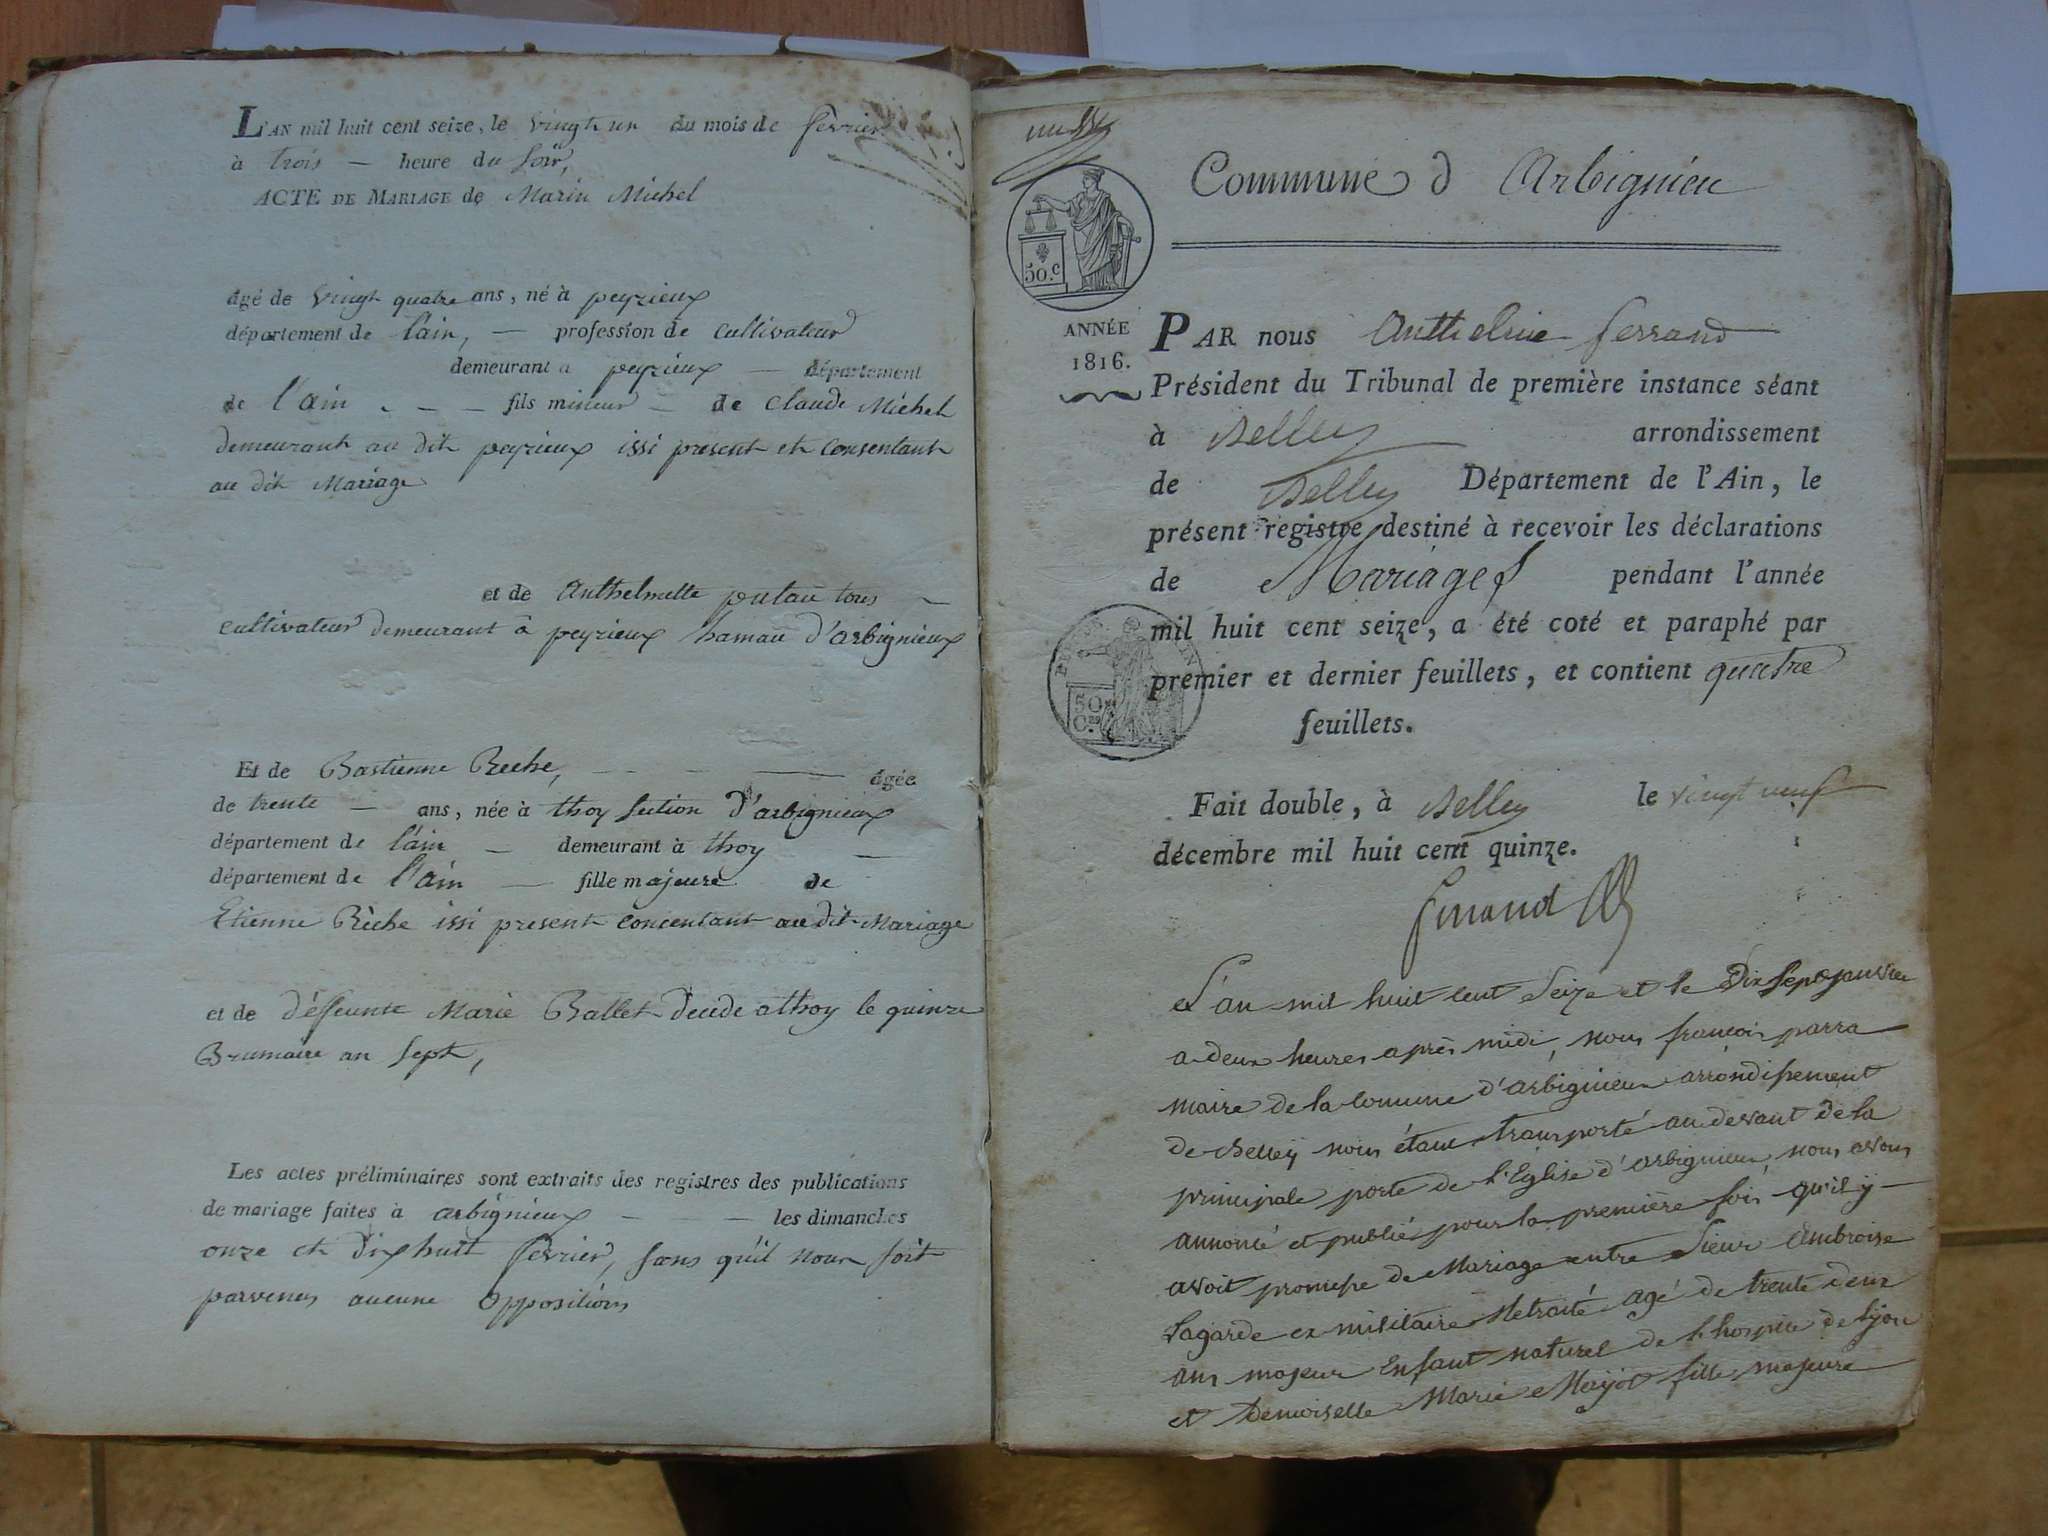 L'AN mil huit cent seize, le vingt un du mois de fevrier
à trois — heure du soir,
ACTE DE MARIAGE de Marin Michel
âgé de vingt quatre ans, né à peyrieux
département de l'ain, — profession de cultivateur
demeurant à peyrieux — département
de l'ain - — — fils mineur — de Claude Michel
demeurant au dit peyrieux issi present et consentant
au dit Mariage
et de Anthelmette
cultivateur demeurant à peyrieux hamau d'arbignieux
Et de Bastienne Reche, — — âgée
de trente — ans, née à thoy section d'arbignieux
département de l'ain — demeurant à thoy —
département de l'ain — fille majeure de
Etienne Rèche issi present concentant au dit Mariage
et de déffeunte Marie Ballet decede a thoy le quinze
Brumaire an sept,
Les actes préliminaires sont extraits des registres des publications
de mariage faites à arbignieux — — les dimanches
onze et dix huit fevrier, sans qu'il nous soit
parvenus aucune oppositions
Commune d Arbignieu
50.c
ANNÉE
1816.
PAR nous Anthelme ferrand
Président du Tribunal de première instance séant
à Belley arrondissement
de Belley Département de l'Ain, le
présent registre destiné à recevoir les déclarations
de Mariages pendant l'année
mil huit cent seize, a été coté et paraphé par
premier et dernier feuillets, et contient quatre
feuillets.
50
Fait double, à Belley le vingt neuf
décembre mil huit cent quinze.
ferrand
L'an mil huit cent seize et le Dix sept janvier
a deux heures après midi, nous françois parra
maire de la comune d'arbignieux arrondissement
de Belley nous étant transporté au devant de la
principale porte de l'Eglise d'arbignieux, nous avons
annoncé et publié pour la première fois qu'il y
avoit promesse de Mariage entre Sieur Ambroise
Lagarde ex militaire Retraité agé de trente deux
ans majeur Enfant naturel de l'hospice de Lyon
et Demoiselle Marie fille majeure